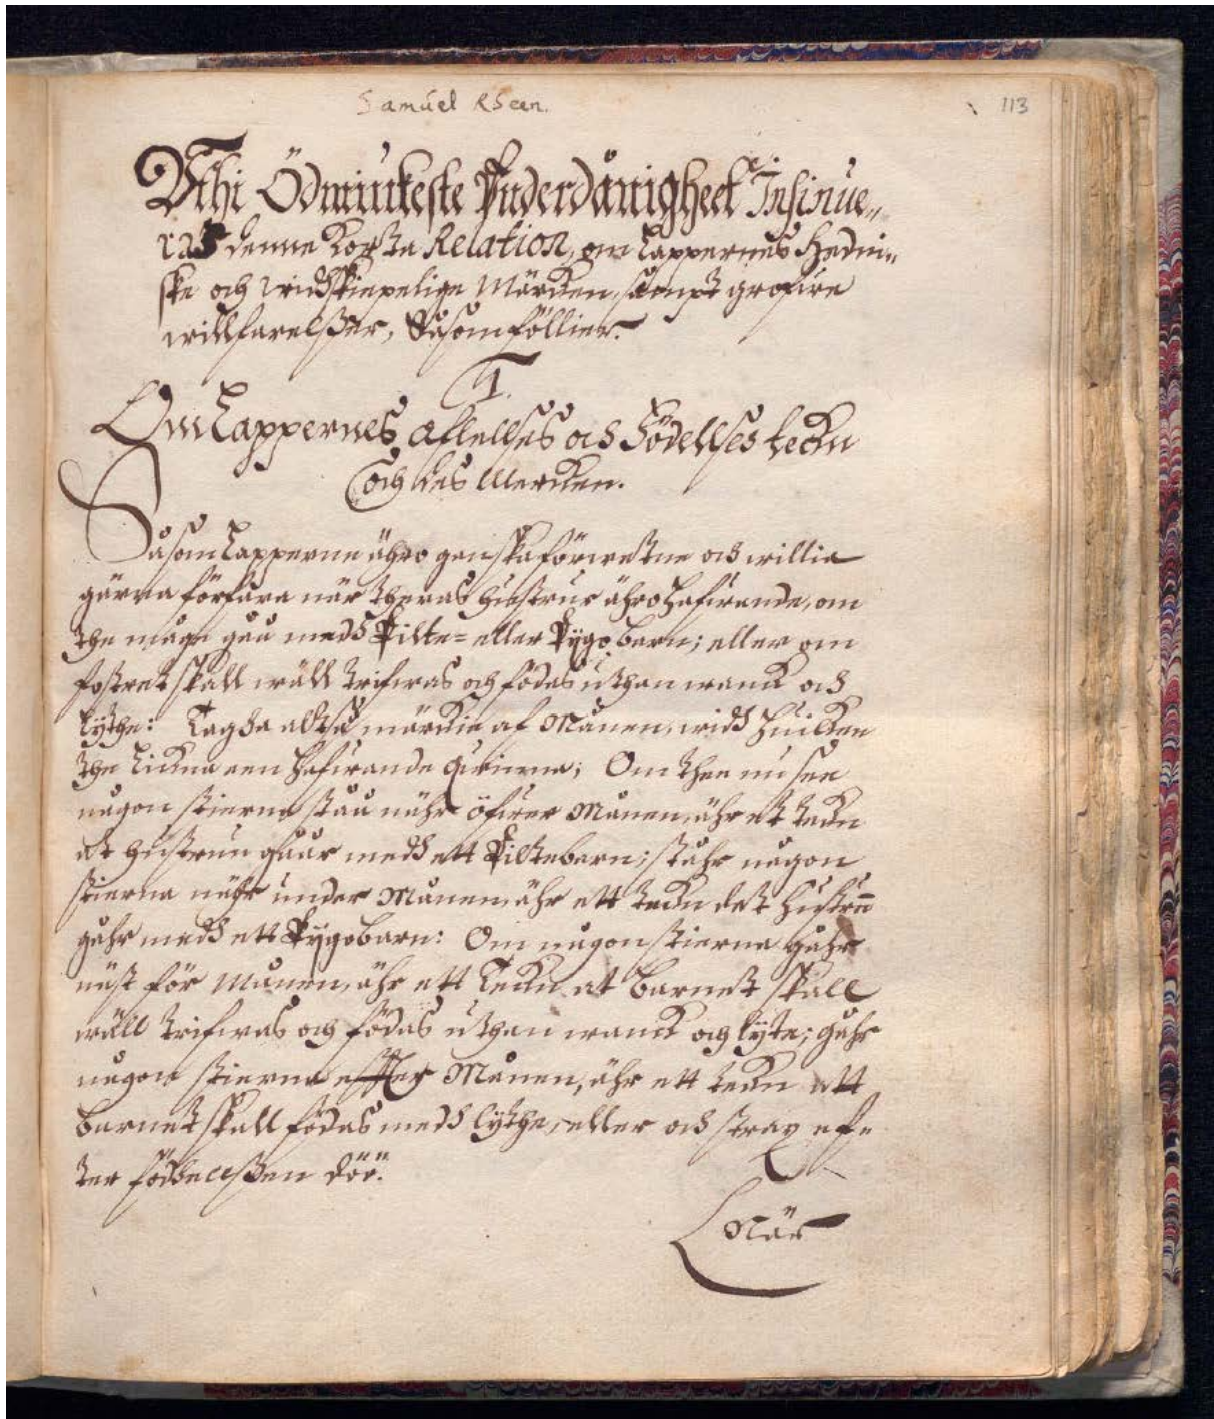 Samuel Rheen.
113
Uthi Ödmiukeste Underdånigheet Insinue„
ras denne korta Relation, om Lapparnes Hedni„
ske och vidskiepelige Märcken, sampt grofwe
willfarelsser, Såsom föllier.
1.
Om Lappernes aflellses och Födellses teckn
och des Mercken.
Såsom Lapperne ähro ganska förwetne och willia
gärna förfara när theras hustrur ähro hafwande, om
the måge gåå medh Pilte= eller Pygo barn; eller om
fostret skall wäll trifwas och födas uthan wanck och
lythe: Tagha altså märckie af Månen, widh huilcken
the lickna een hafwande quinna; Om thee nu see
någon stierna ståå nähr öfwer Månen, ähr ett teckn
at hustrun gåår medh ett Piltebarn; ståhr någon
stierna nähr under Månen ähr ett teckn det hustrun
gåhr medh ett Pygobarn: Om någon stierna gåhr
näst för Månen, ähr ett Teckn at barnet skall
wäll trifwas och födas uthan wanck och lyte; gåhr
någon stierna effter Månen, ähr ett teckn att
barnet skall födas medh lythe, eller och strax ef„
ter födhellssen döö.
När